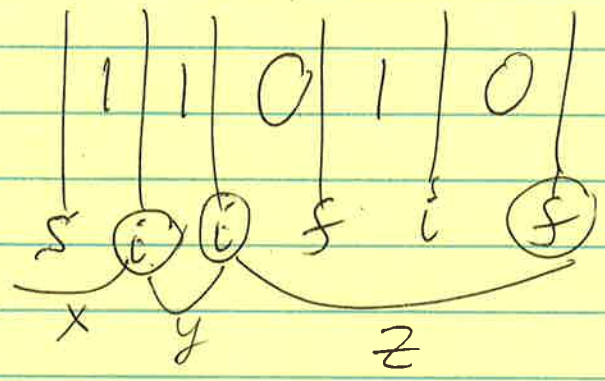 1 1 0 1 0
s i i f i f
x y z